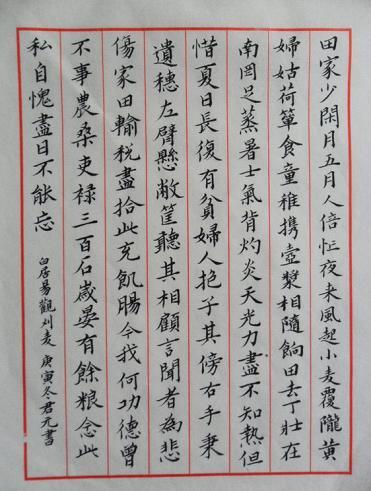 田家少閑月五月人倍忙夜来風起小麦覆隴黃
婦姑荷簞食童稚携壺漿相隨餉田去丁壯在
南岡足蒸暑士氣背灼炎天光力盡不知熱但
惜夏日長復有貧婦人抱子其傍右手秉
遺穗左臂懸敝筐聽其相顧言聞者為悲
傷家田輸税盡拾此充飢腸今我何功德曾
不事農桑吏禄三百石歲晏有餘粮念此
私自愧盡日不能忘 白居易觀刈麦 庚寅冬君元書